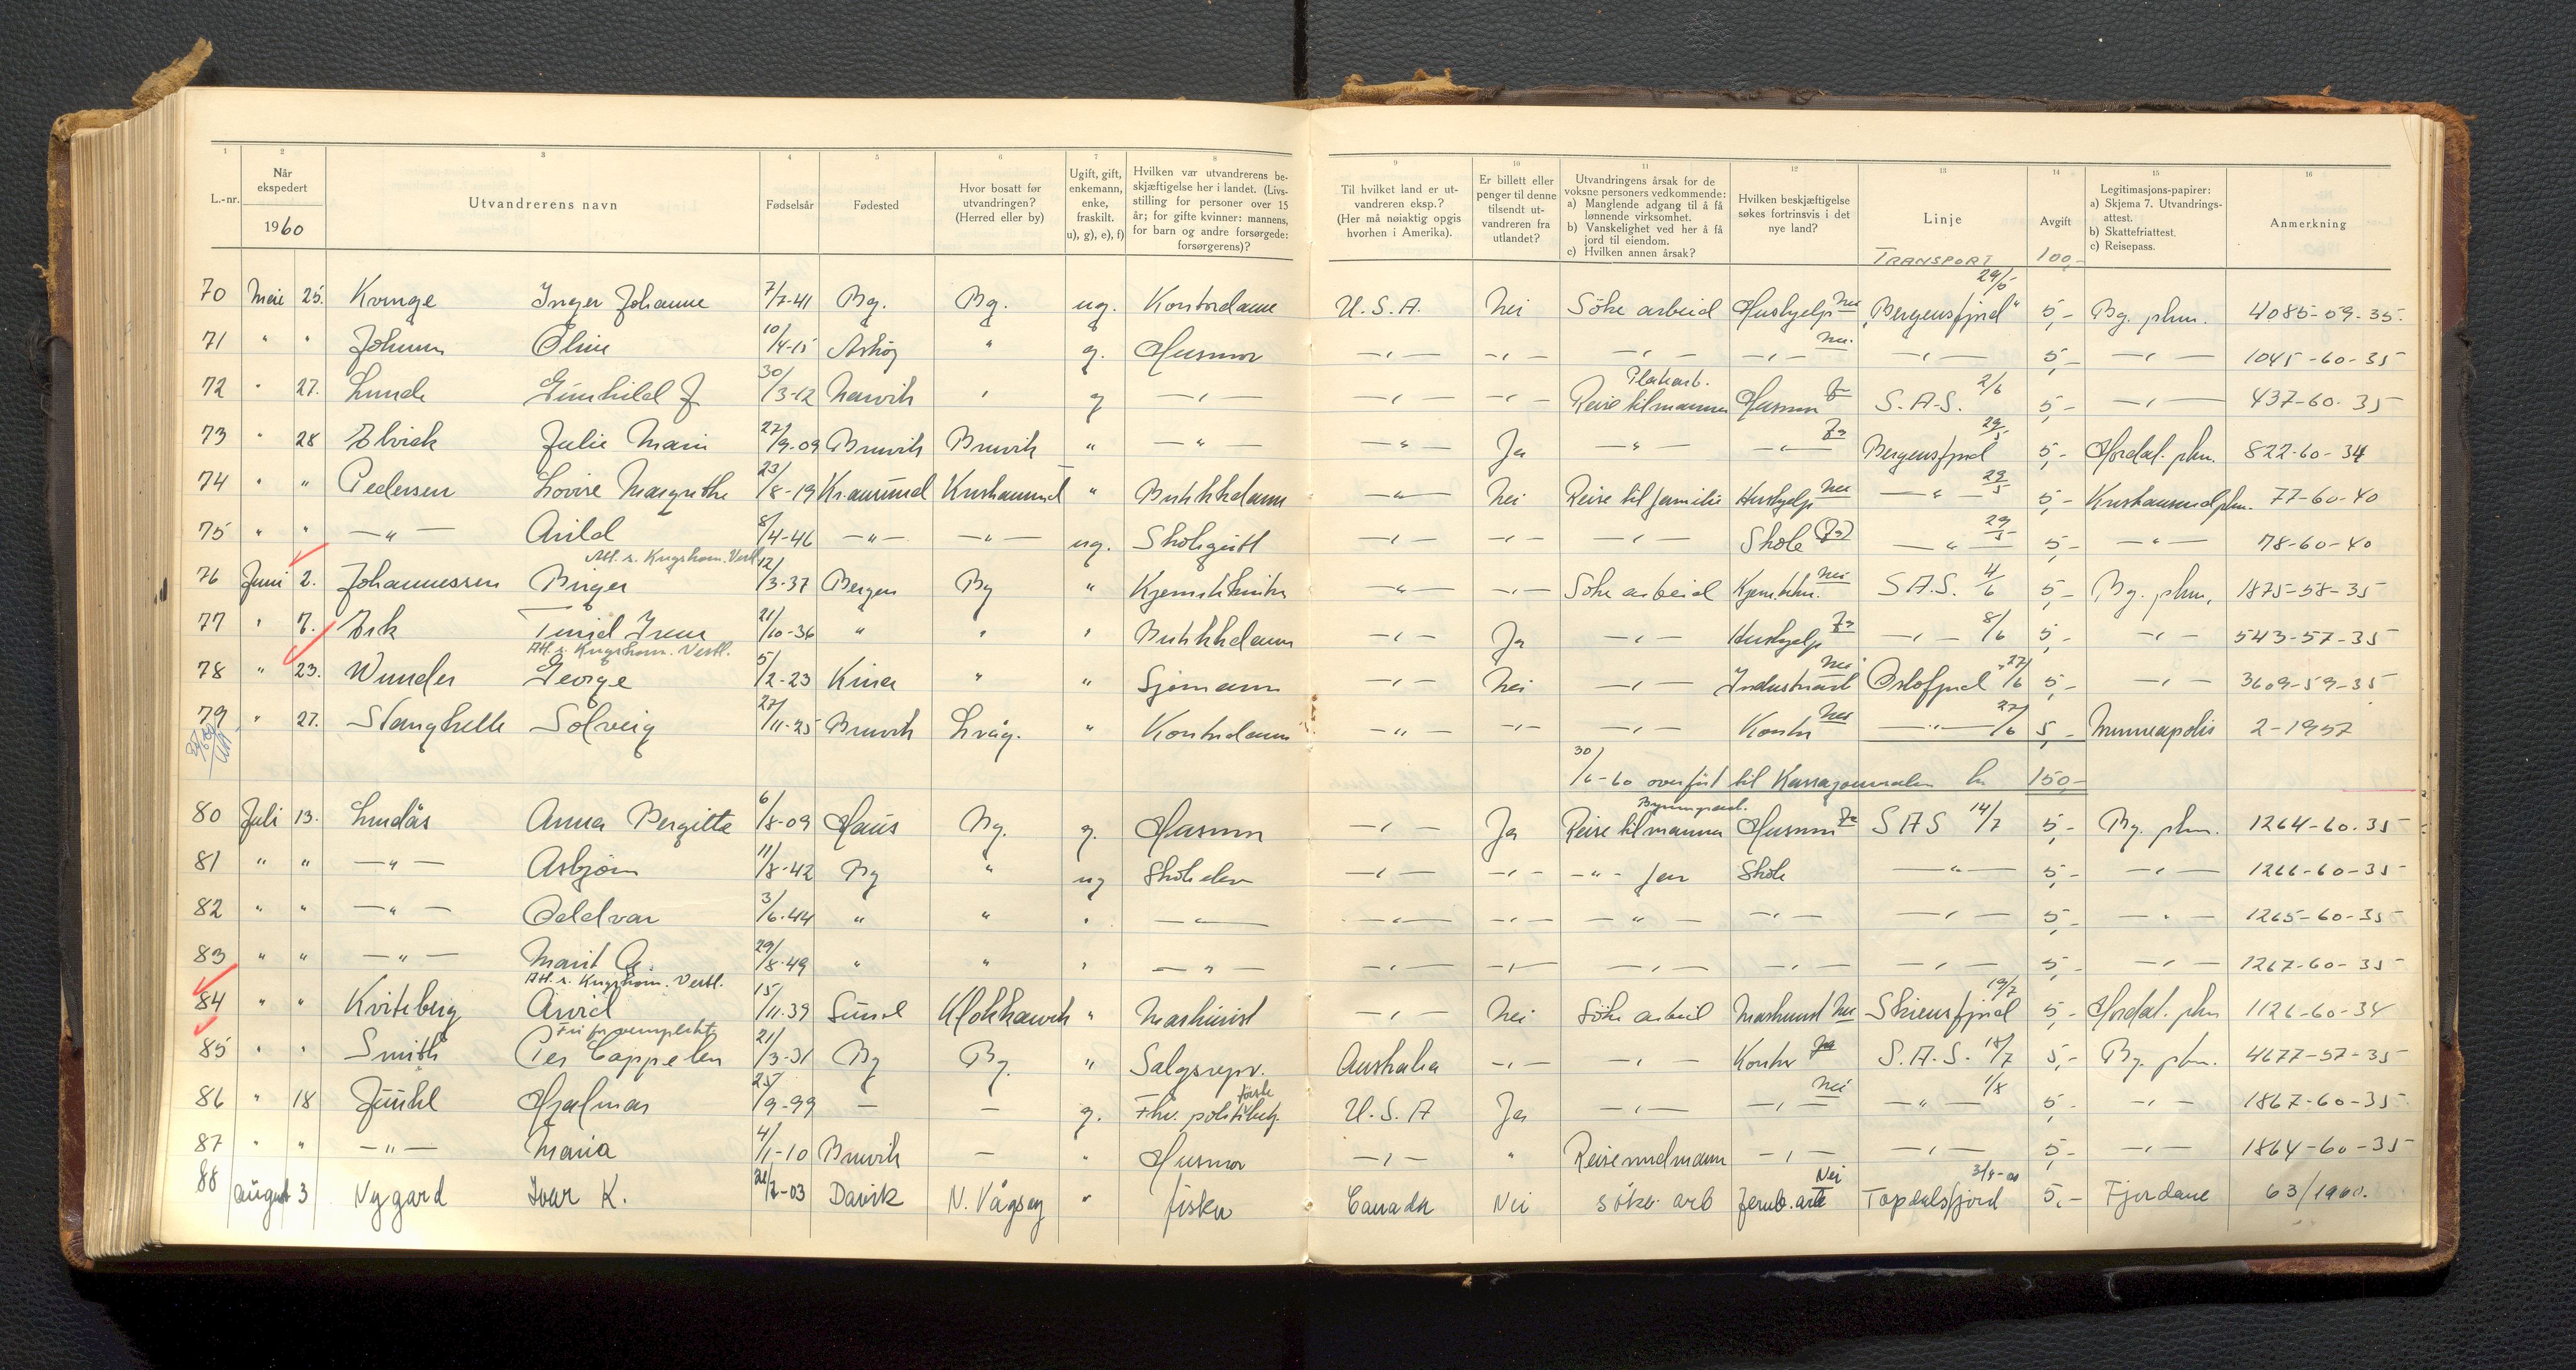 1 2 3 4 5 6 7 8 9 10 11 12 13 14 15 16
L.-nr. Når ekspedert 1960 Utvandrerens navn Fødselsår Fødested Hvor bosatt før utvandringen? (Herred eller by) Ugift, gift, enkemann, enke, fraskilt. u), g), e), f) Hvilken var utvandrerens beskjæftigelse her i landet. (Livsstilling for personer over 15 år; for gifte kvinner: mannens, for barn og andre forsørgede: forsørgerens)? Til hvilket land er utvandreren eksp.? (Her må nøiaktig opgis hvorhen i Amerika). Er billett eller penger til denne tilsendt utvandreren fra utlandet? Utvandringens årsak for de voksne personers vedkommende: a) Manglende adgang til å få lønnende virksomhet. b) Vanskelighet ved her å få jord til eiendom. c) Hvilken annen årsak? Hvilken beskjæftigelse søkes fortrinsvis i det nye land? Linje Avgift Legitimasjons-papirer: a) Skjema 7. Utvandringsattest. b) Skattefriattest. c) Reisepass. Anmerkning
TRANSPORT 100,-
70 Mai 25. Kvinge Inger Johanne 7/7-41 Bg. Bg. ug. Kontordame U.S.A. Nei Söke arbeid Hushjelp Nei "Bergensfjord" 29/5 5,- Bg. pkm. 4085-59-35.
71 " " Johnsen Oline 10/4-15 Askøy " g. Husmor -"- -"- -"- -"- Nei. -"- 5,- -"- 1045-60-35
72 " 27. Lunde Gunhild J 30/3-12 Narvik " g -"- -"- -"- Platearb. Reise til mannen Husmor Ja S.A.S. 2/6 5,- -"- 437-60-35
73 " 28 Elvick Julie Marie 27/9-09 Bruvik Bruvik " -"- -"- Ja -"- -"- Ja Bergensfjord 29/5 5,- Hordal. pkm. 822-60-34
74 " " Pedersen Lovise Margrethe 23/8-19 Kr.ansund Kristiansund " Butikkdame -"- Nei Reise til familie Hushjelp Nei -"- 29/5 5,- Kristiansund pkm. 77-60-40
75 " " -"- Arild 8/4-46 -"- -"- ug. Skolegutt -"- -"- -"- Skole (Ja) -"- 29/5 5,- -"- 78-60-40
Att. s. Krigskom. Vestl.
76 Juni 2. Johannessen Birger 12/3-37 Bergen Bg " Kjemitekniker -"- -"- Söke arbeid Kjem.tekn. Nei S.A.S. 4/6 5,- Bg. pkm. 1875-58-35
77 " 7. Eek Turid Irene 21/10-36 " " " Butikkdame -"- Ja -"- Hushjelp Ja -"- 8/6 5,- -"- 543-57-35
Att. s. Krigskom. Vestl.
78 " 23. Wunder George 5/2-23 Kina " " Sjömann -"- Nei -"- Industriarb Nei Oslofjord 27/6 5,- -"- 3609-59-35
79 " 27. Stanghelle Solveig 27/11-25 Bruvik Lvåg. " Kontordame -"- -"- -"- Kontor Nei -"- 27/6 5,- Minneapolis 2-1957
30/6-60 overfört til Kassajournalen kr 150,-
80 Juli 13. Lindås Anna Bergitte 6/8-09 Haus Bg. g. Husmor -"- Ja Reise til mannen Husmor Ja SAS 14/7 5,- Bg. pkm. 1264-60-35
81 " " -"- Asbjörn 11/8-42 Bg " ug Skoleelev -"- -"- -"- far Skole -"- 5,- -"- 1266-60-35
82 " " -"- Oddvar 3/6-44 " " " -"- -"- -"- -"- -"- -"- 5,- -"- 1265-60-35
83 " " -"- Marit A. 29/8-49 " " " -"- -"- -"- -"- -"- -"- 5,- -"- 1267-60-35
Att. s. Krigskom. Vestl.
84 " " Kviteberg Arvid 15/11-39 Sund Klokkarvik " Maskinist -"- Nei Söke arbeid Maskinist Nei Skiensfjord 19/7 5,- Hordal. pkm 1126-60-34
Fri for verneplikt
85 " " Smith Per Cappelen 21/3-31 Bg Bg. " Salgsrepr. Australia -"- -"- Kontor Ja S.A.S. 18/7 5,- Bg. pkm. 4677-57-35
86 " 18 Juuhl Hjalmar 25/9-99 - - g. Fhv. politiförstebetj. U.S.A Ja -"- -"- Nei -"- 1/8 5,- -"- 1867-60-35
87 " " -"- Maria 4/1-10 Bruvik - " Husmor -"- " Reise m/d mann -"- -"- 5,- -"- 1864-60-35
88 august 3 Nygard Ivar K. Davik N. Vågsøy " fisker Canada Nei söke arb Jernb. arb Nei Topdalsfjord 5,- Fjordane 63/1960.